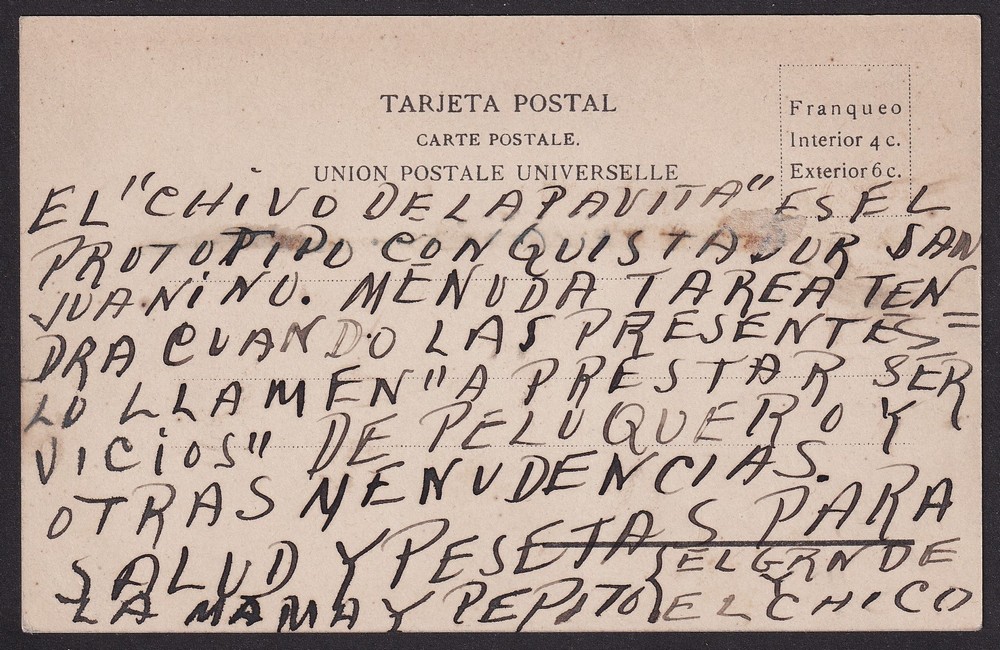 TARJETA POSTAL
CARTE POSTALE.
UNION POSTALE UNIVERSELLE
Franqueo
Interior 4 c.
Exterior 6 c.
EL "CHIVO DE LA PAVITA" ES EL
PROTOTIPO CONQUISTADOR SAN
JUANINO. MENUDA TAREA TEN
DRA CUANDO LAS PRESENTES=
LO LLAMEN "A PRESTAR SER
VICIOS" DE PELUQUERO Y
OTRAS MENUDENCIAS.
SALUD Y PESETAS PARA
LA MAMA Y PEPITO
EL GRNDE
Y
EL CHICO